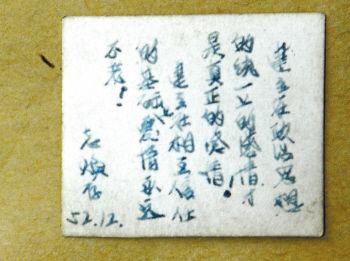 建立在政治思想
的统一上的感情才
是真正的感情！
建立在相互信任
的基础上感情永远
不老！
52.12.